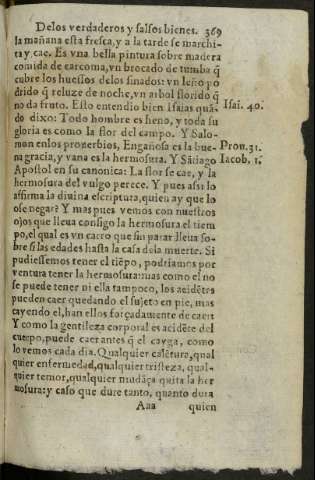 De los verdaderos y falsos bienes. 369
la mañana esta fresca, y a la tarde se marchi-
ta y cae. Es vna bella pintura sobre madera
comida de carcoma, vn brocado de tumba q̃
cubre los huessos de los finados: vn leño po
drido q̃ reluze de noche, vn arbol florido q̃
no da fruto. Esto entendio bien Isaias quã- Isai. 40.
do dixo: Todo hombre es heno, y toda su
gloria es como la flor del campo. Y Salo-
mon en los prouerbios, Engañosa es la bue- Prou. 31.
na gracia, y vana es la hermosura. Y Sãtiago Iacob. 1.
Apostol en su canonica: La flor se cae, y la
hermosura del vulgo perece. Y pues assi lo
affirma la diuina escriptura, quien ay que lo
ose negar? Y mas pues vemos con nuestros
ojos que lleua consigo la hermosura el tiem
po, el qual es vn carro que sin parar lleua so-
bre si las edades hasta la casa dela muerte. Si
pudiessemos tener el tiẽpo, podriamos por
ventura tener la hermosura: mas como el no
se puede tener ni ella tampoco, los acidẽtes
pueden caer quedando el sujeto en pie, mas
cayendo el, han ellos forçadamente de caer.
Y como la gentileza corporal es acidẽte del
cuerpo, puede caer antes q̃ el cayga, como
lo vemos cada dia. Qualquier calẽtura, qual
quier enfermedad, qualquier tristeza, qual-
quier temor, qualquier mudãça quita la her
mosura: y caso que dure tanto, quanto dura
Aaa quien